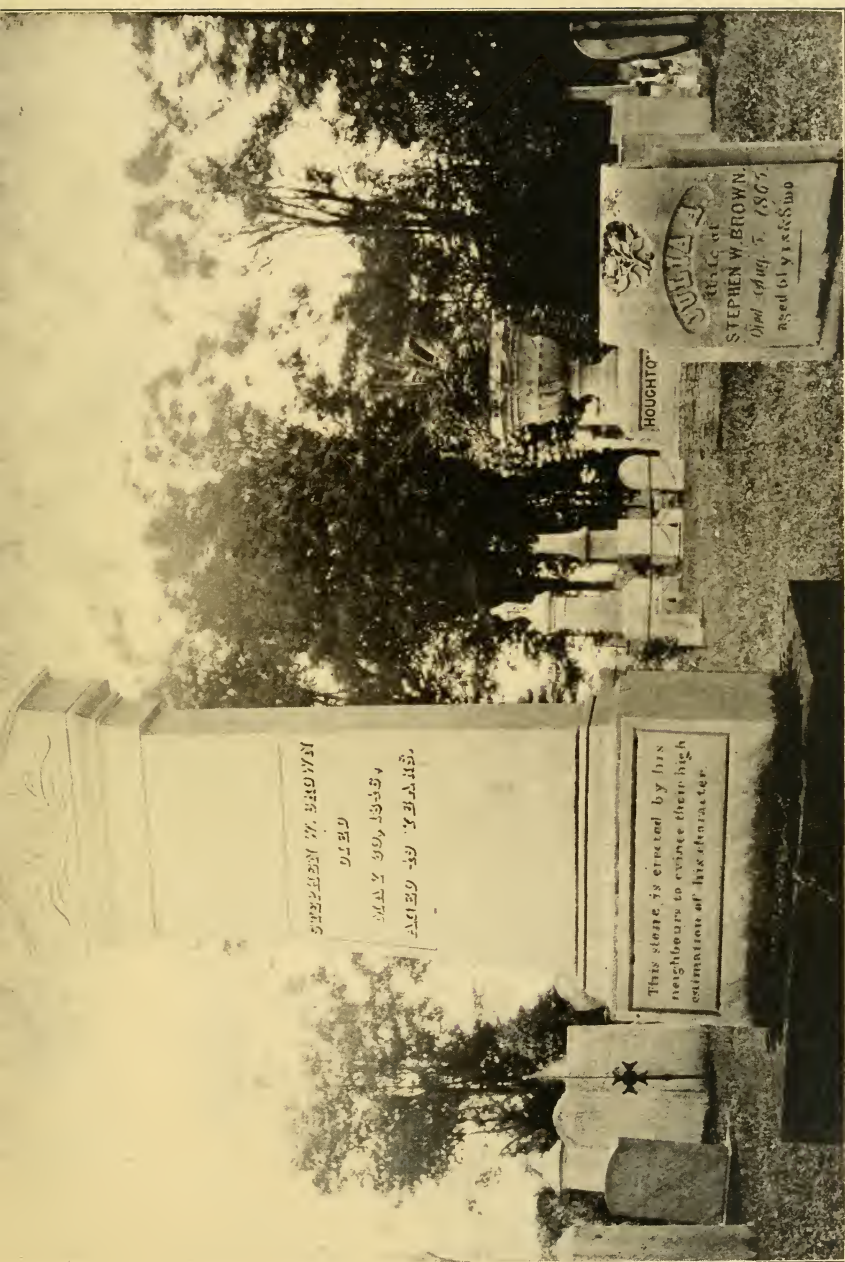 STEPHEN W. BROWN
DIED
MAY
AGED 49 YEARS.
This stone is erected by his
neighbours to evince their high
estimation of his character.
HOUGHTO
JULIA A.
Wife of
STEPHEN W. BROWN.
Died Aug. 5,
aged 61 yrs & 8 mo